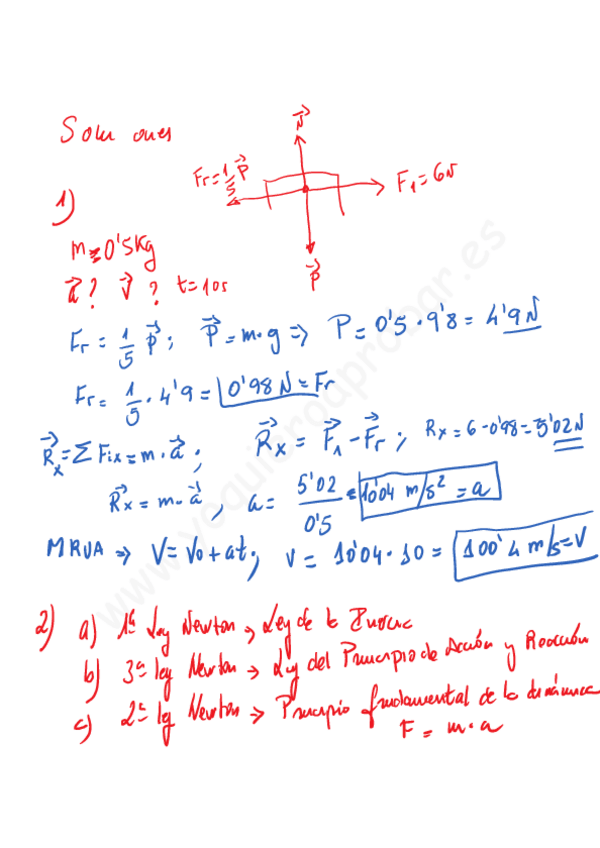 Soluciones
N
Fr = 1/5 P
F₁ = 6N
P
1)
m = 0'5 Kg
a? v? t = 10s
Fr = 1/5 P; P = m·g => P = 0'5 · 9'8 = 4'9 N
Fr = 1/5 · 4'9 = 0'98 N = Fr
Rx = Σ Fix = m·a; Rx = F₁ - Fr; Rx = 6 - 0'98 = 5'02 N
Rx = m·a, a = 5'02/0'5 = 10'04 m/s² = a
MRUA => V = V₀ + at; v = 10'04 · 10 = 100'4 m/s = V
2) a) 1ª Ley Newton → Ley de la Inercia
b) 3ª ley Newton → Ley del Principio de Acción y Reacción
c) 2ª ley Newton → Principio fundamental de la dinámica
F = m·a
www.yoquieroaprobar.es